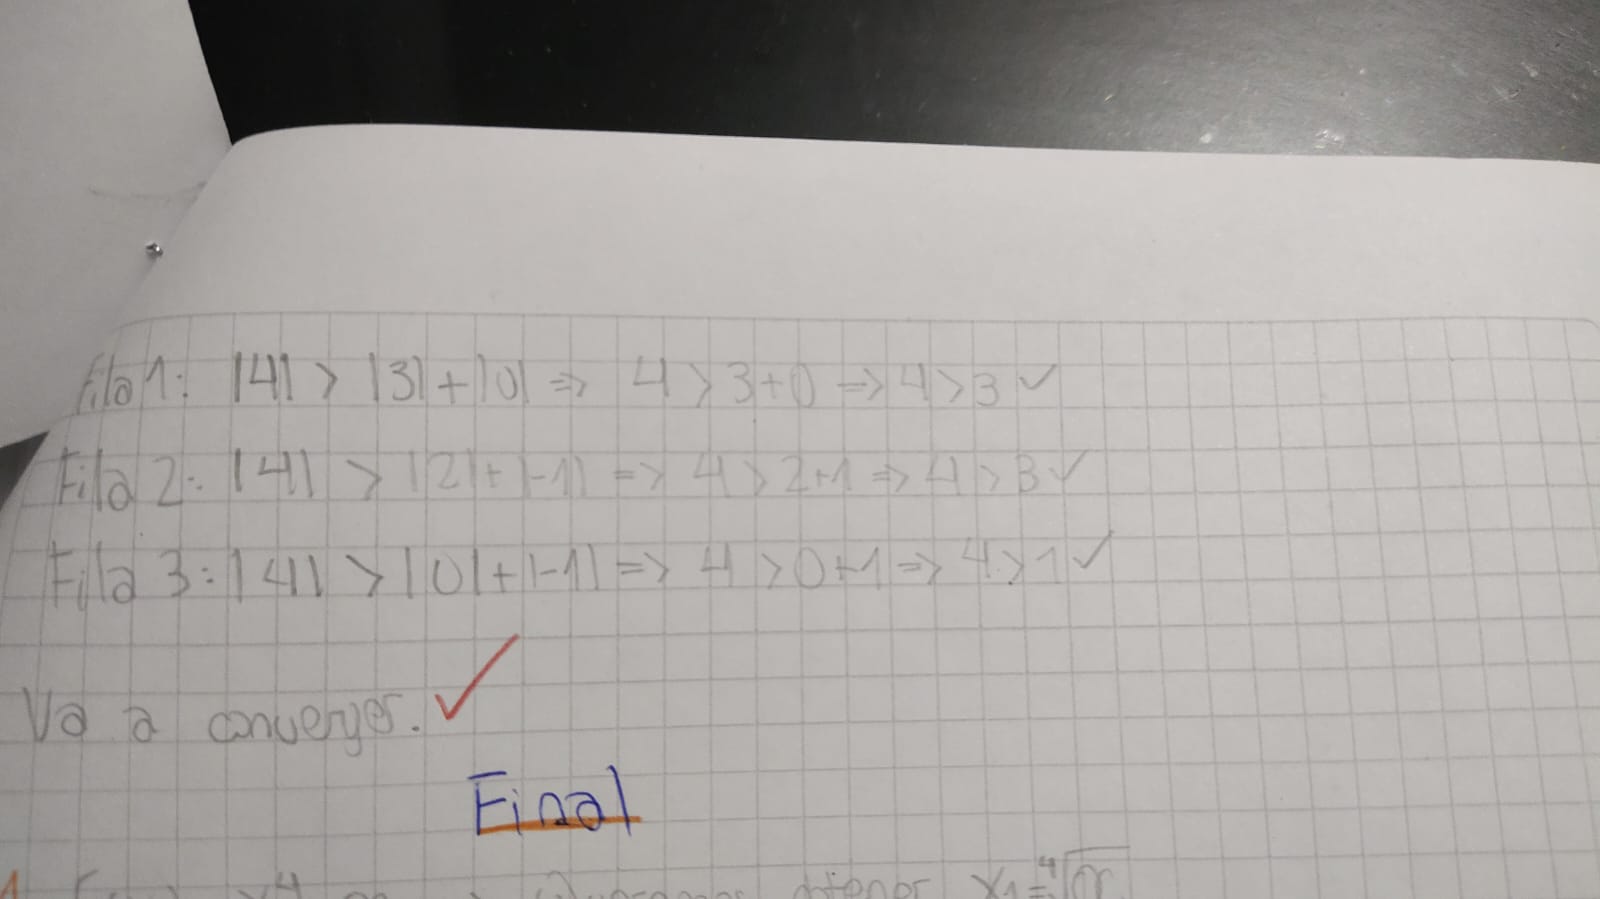 Fila 1: |4| > |3|+|0| => 4 > 3+0 => 4 > 3 ✓
Fila 2: |4| > |2|+|-1| => 4 > 2+1 => 4 > 3 ✓
Fila 3: |4| > |0|+|-1| => 4 > 0+1 => 4 > 1 ✓
Va a converger. ✓
Final
obtener x₁ = ∜